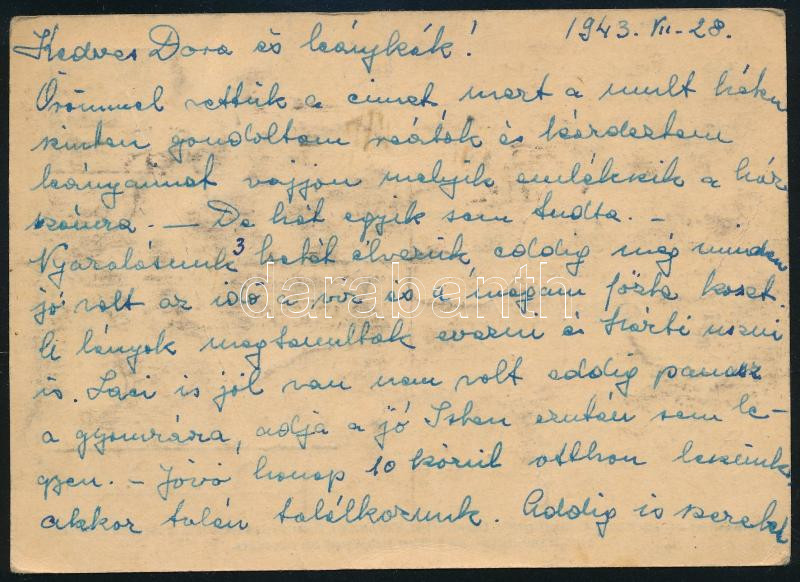 1943. VII-28.
Kedves Dora és leánykák!
Örömmel vettük a címet mert a mult héten
szinten gondoltam reátok és kérdeztem
leányaimat vajjon melyik emlékszik a ház
számra. — De hát egyik sem tudta. -
Nyaralásunk 3 hetét élvezük eddig még minden
jó volt az idő a víz és a magam főzte koszt.
A lányok megtanultak evezni és Márti uszni
is. Laci is jól van nem volt eddig panasz
a gyomrára, adja a jó Isten ezután sem le-
gyen. - Jövő honap 10 körül otthon leszünk,
akkor talán találkozunk. Addig is szeretet
darabanth